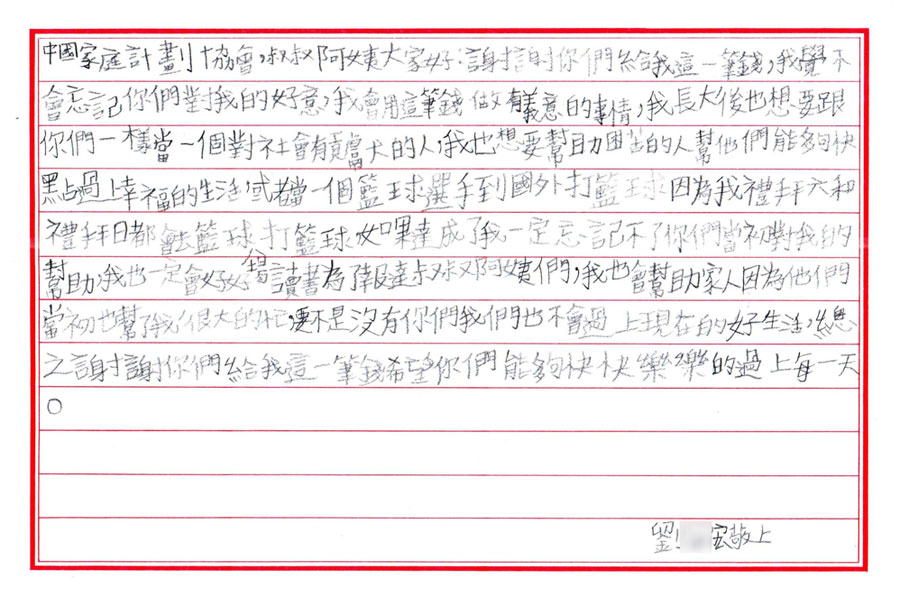 中國家庭計劃協會,叔叔阿姨大家好:謝謝你們給我這一筆錢,我覺不
會忘記你們對我的好意,我會用這筆錢做有義意的事情,我長大後也想要跟
你們一樣當一個對社會有貢獻的人,我也想要幫助困苦的人幫他們能夠快
點過上幸福的生活,或者當一個籃球選手到國外打籃球因為我禮拜六和
禮拜日都會去籃球打籃球,如果達成了我一定忘記不了你們當初對我的
幫助,我也一定會好好讀書為了報達叔叔阿姨們,我也會幫助家人因為他們
當初也幫了我很大的忙,要不是沒有你們我們也不會過上現在的好生活,總
之謝謝你們給我這一筆錢希望你們能夠快快樂樂的過上每一天
。
劉 宏敬上